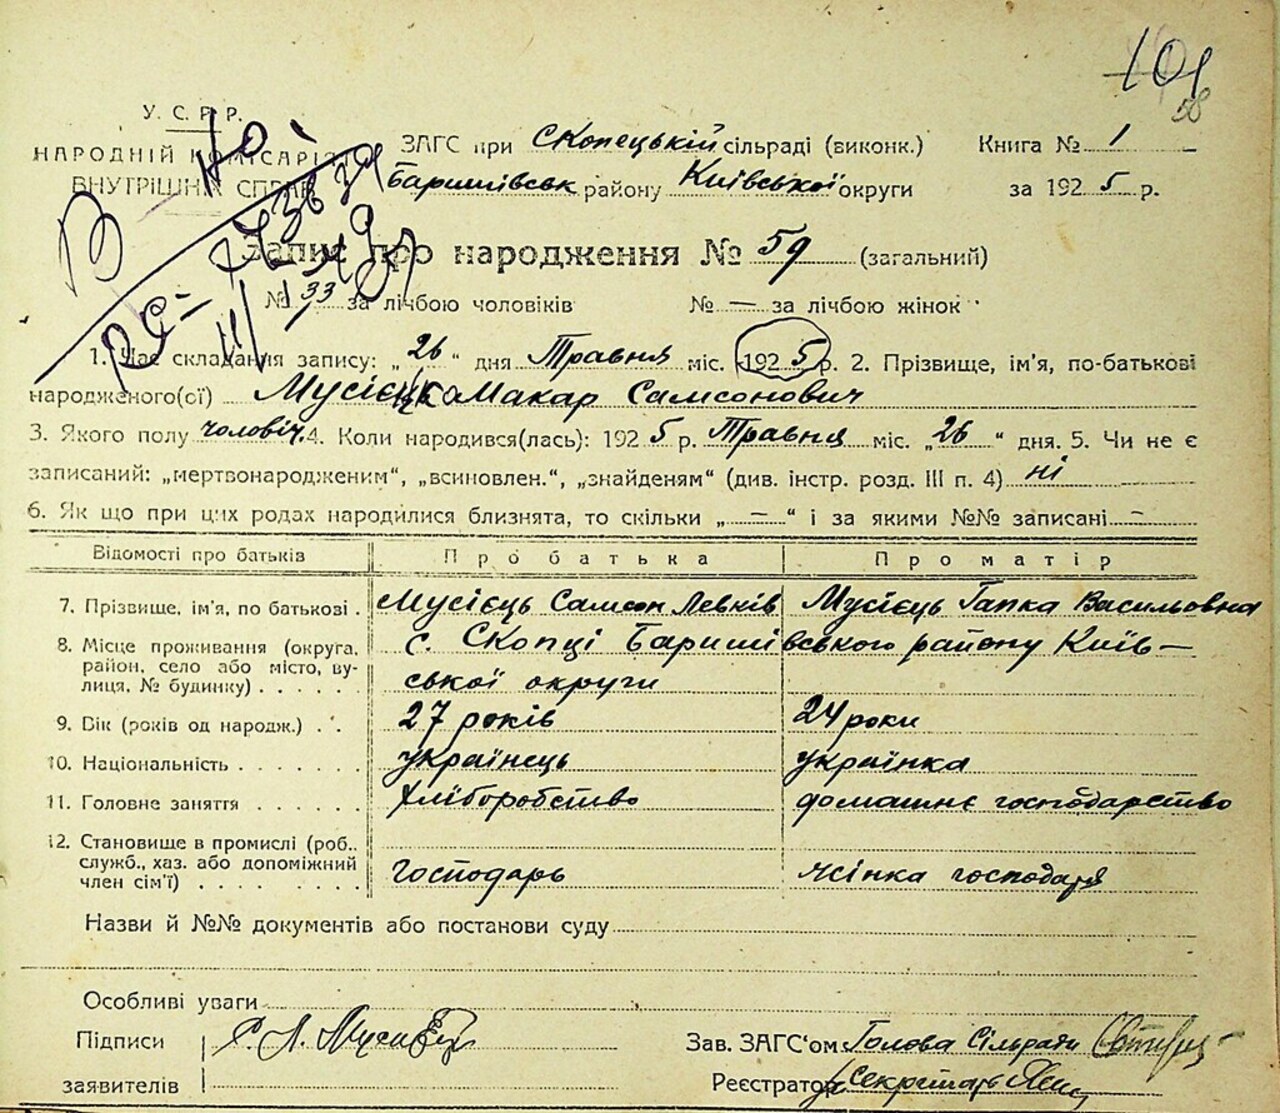 101
58
У. С. Р. Р.
НАРОДНІЙ КОМІСАРІЯТ
ВНУТРІШНІХ СПРАВ
ЗАГС при Скопецькій сільраді (виконк.) Книга № 1
Баришівськ району Київської округи за 1925 р.
Запис про народження № 59 (загальний)
№ 33 за лічбою чоловіків № — за лічбою жінок
1. Час складання запису: „26“ дня Травня міс. 1925 р. 2. Прізвище, ім'я, по-батькові
народженого(ої) Мусієць Макар Самсонович
3. Якого полу чоловіч. 4. Коли народився(лась): 1925 р. Травня міс. „26“ дня. 5. Чи не є
записаний: „мертвонародженим“, „всиновлен.“, „знайденям“ (див. інстр. розд. III п. 4) ні
6. Як що при цих родах народилися близнята, то скільки „—“ і за якими №№ записані —
Відомості про батьків Про батька Про матір
7. Прізвище, ім'я, по батькові . Мусієць Самсон Левків Мусієць Гапка Васильовна
8. Місце проживання (округа, с. Скопці Баришівського району Київ-
район, село або місто, ву-
лиця, № будинку) . . . . . . ської округи
9. Вік (років од народж.) . . 27 років 24 роки
10. Національність . . . . . . . українець українка
11. Головне заняття . . . . . . хліборобство домашнє господарство
12. Становище в промислі (роб..
служб., хаз. або допоміжний
член сім'ї) . . . . . . . . господарь жінка господаря
Назви й №№ документів або постанови суду
Особливі уваги
Підписи
заявителів
Зав. ЗАГС'ом Голова Сільради
Реєстратор Секретарь